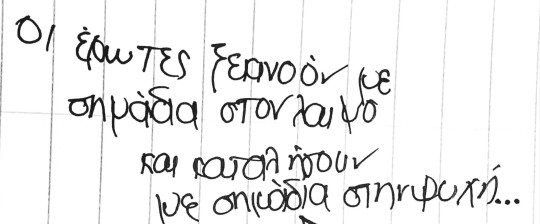 Οι έρωτες ξεκινούν με
σημάδια στον λαιμό
και καταλήγουν
με σημάδια στην ψυχή...